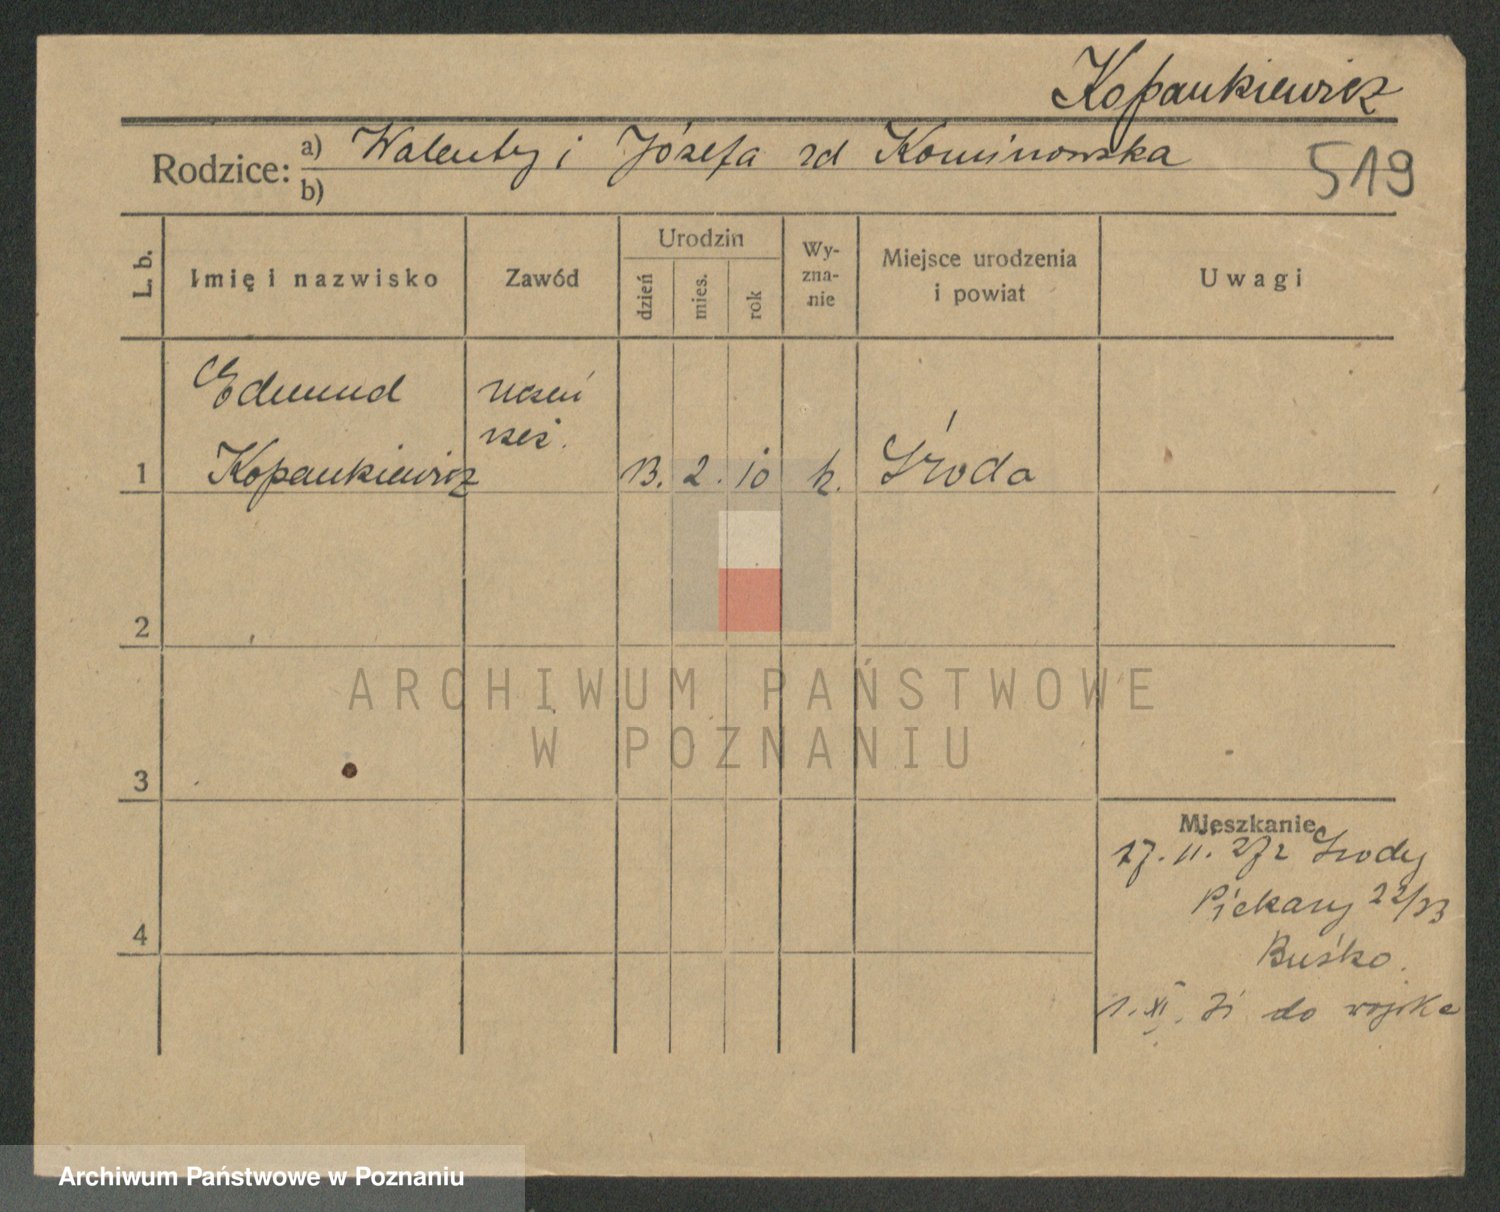 Kopankiewicz
Rodzice: a) Walenty i Józefa zd Kominowska
b)
519
L. b.
Imię i nazwisko
Zawód
Urodzin
dzień
mies.
rok
Wy-
zna-
nie
Miejsce urodzenia
i powiat
Uwagi
1
Edmund
Kopankiewicz
uczeń
rzeź.
13. 2. 10
k.
Środa
2
3
4
Mieszkanie
17. 11. 27 z Środy
Piekary 22/23
Buśko.
1. XI. 31 do wojska
ARCHIWUM PAŃSTWOWE
W POZNANIU
Archiwum Państwowe w Poznaniu